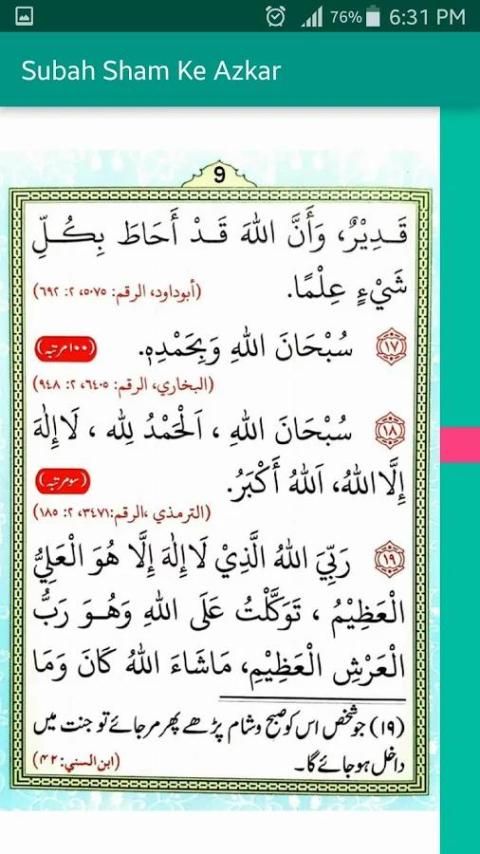 76% 6:31 PM
Subah Sham Ke Azkar
9
قَدِيْرٌ، وَأَنَّ اللهَ قَدْ أَحَاطَ بِكُلِّ
شَيْءٍ عِلْمًا. (أبوداود، الرقم: ٥٠٧٥، ٢: ٦٩٢)
(١٧) سُبْحَانَ اللهِ وَبِحَمْدِهٖ. (۱۰۰ مرتبہ)
(البخاري، الرقم: ٦٤٠٥، ٢: ٩٤٨)
(١٨) سُبْحَانَ اللهِ ، اَلْحَمْدُ لِلهِ ، لَا إِلٰهَ
إِلَّا اللهُ، اَللهُ أَكْبَرُ. (سو مرتبہ)
(الترمذي ،الرقم:٣٤٧١، ٢: ١٨٥)
(١٩) رَبِّيَ اللهُ الَّذِيْ لَا إِلٰهَ إِلَّا هُوَ الْعَلِيُّ
الْعَظِيْمُ ، تَوَكَّلْتُ عَلَى اللهِ وَهُوَ رَبُّ
الْعَرْشِ الْعَظِيْمِ، مَاشَاءَ اللهُ كَانَ وَمَا
(۱۹) جو شخص اس کو صبح وشام پڑھے پھر مرجائے تو جنت میں
داخل ہوجائے گا۔ (ابن السني: ٤٢)